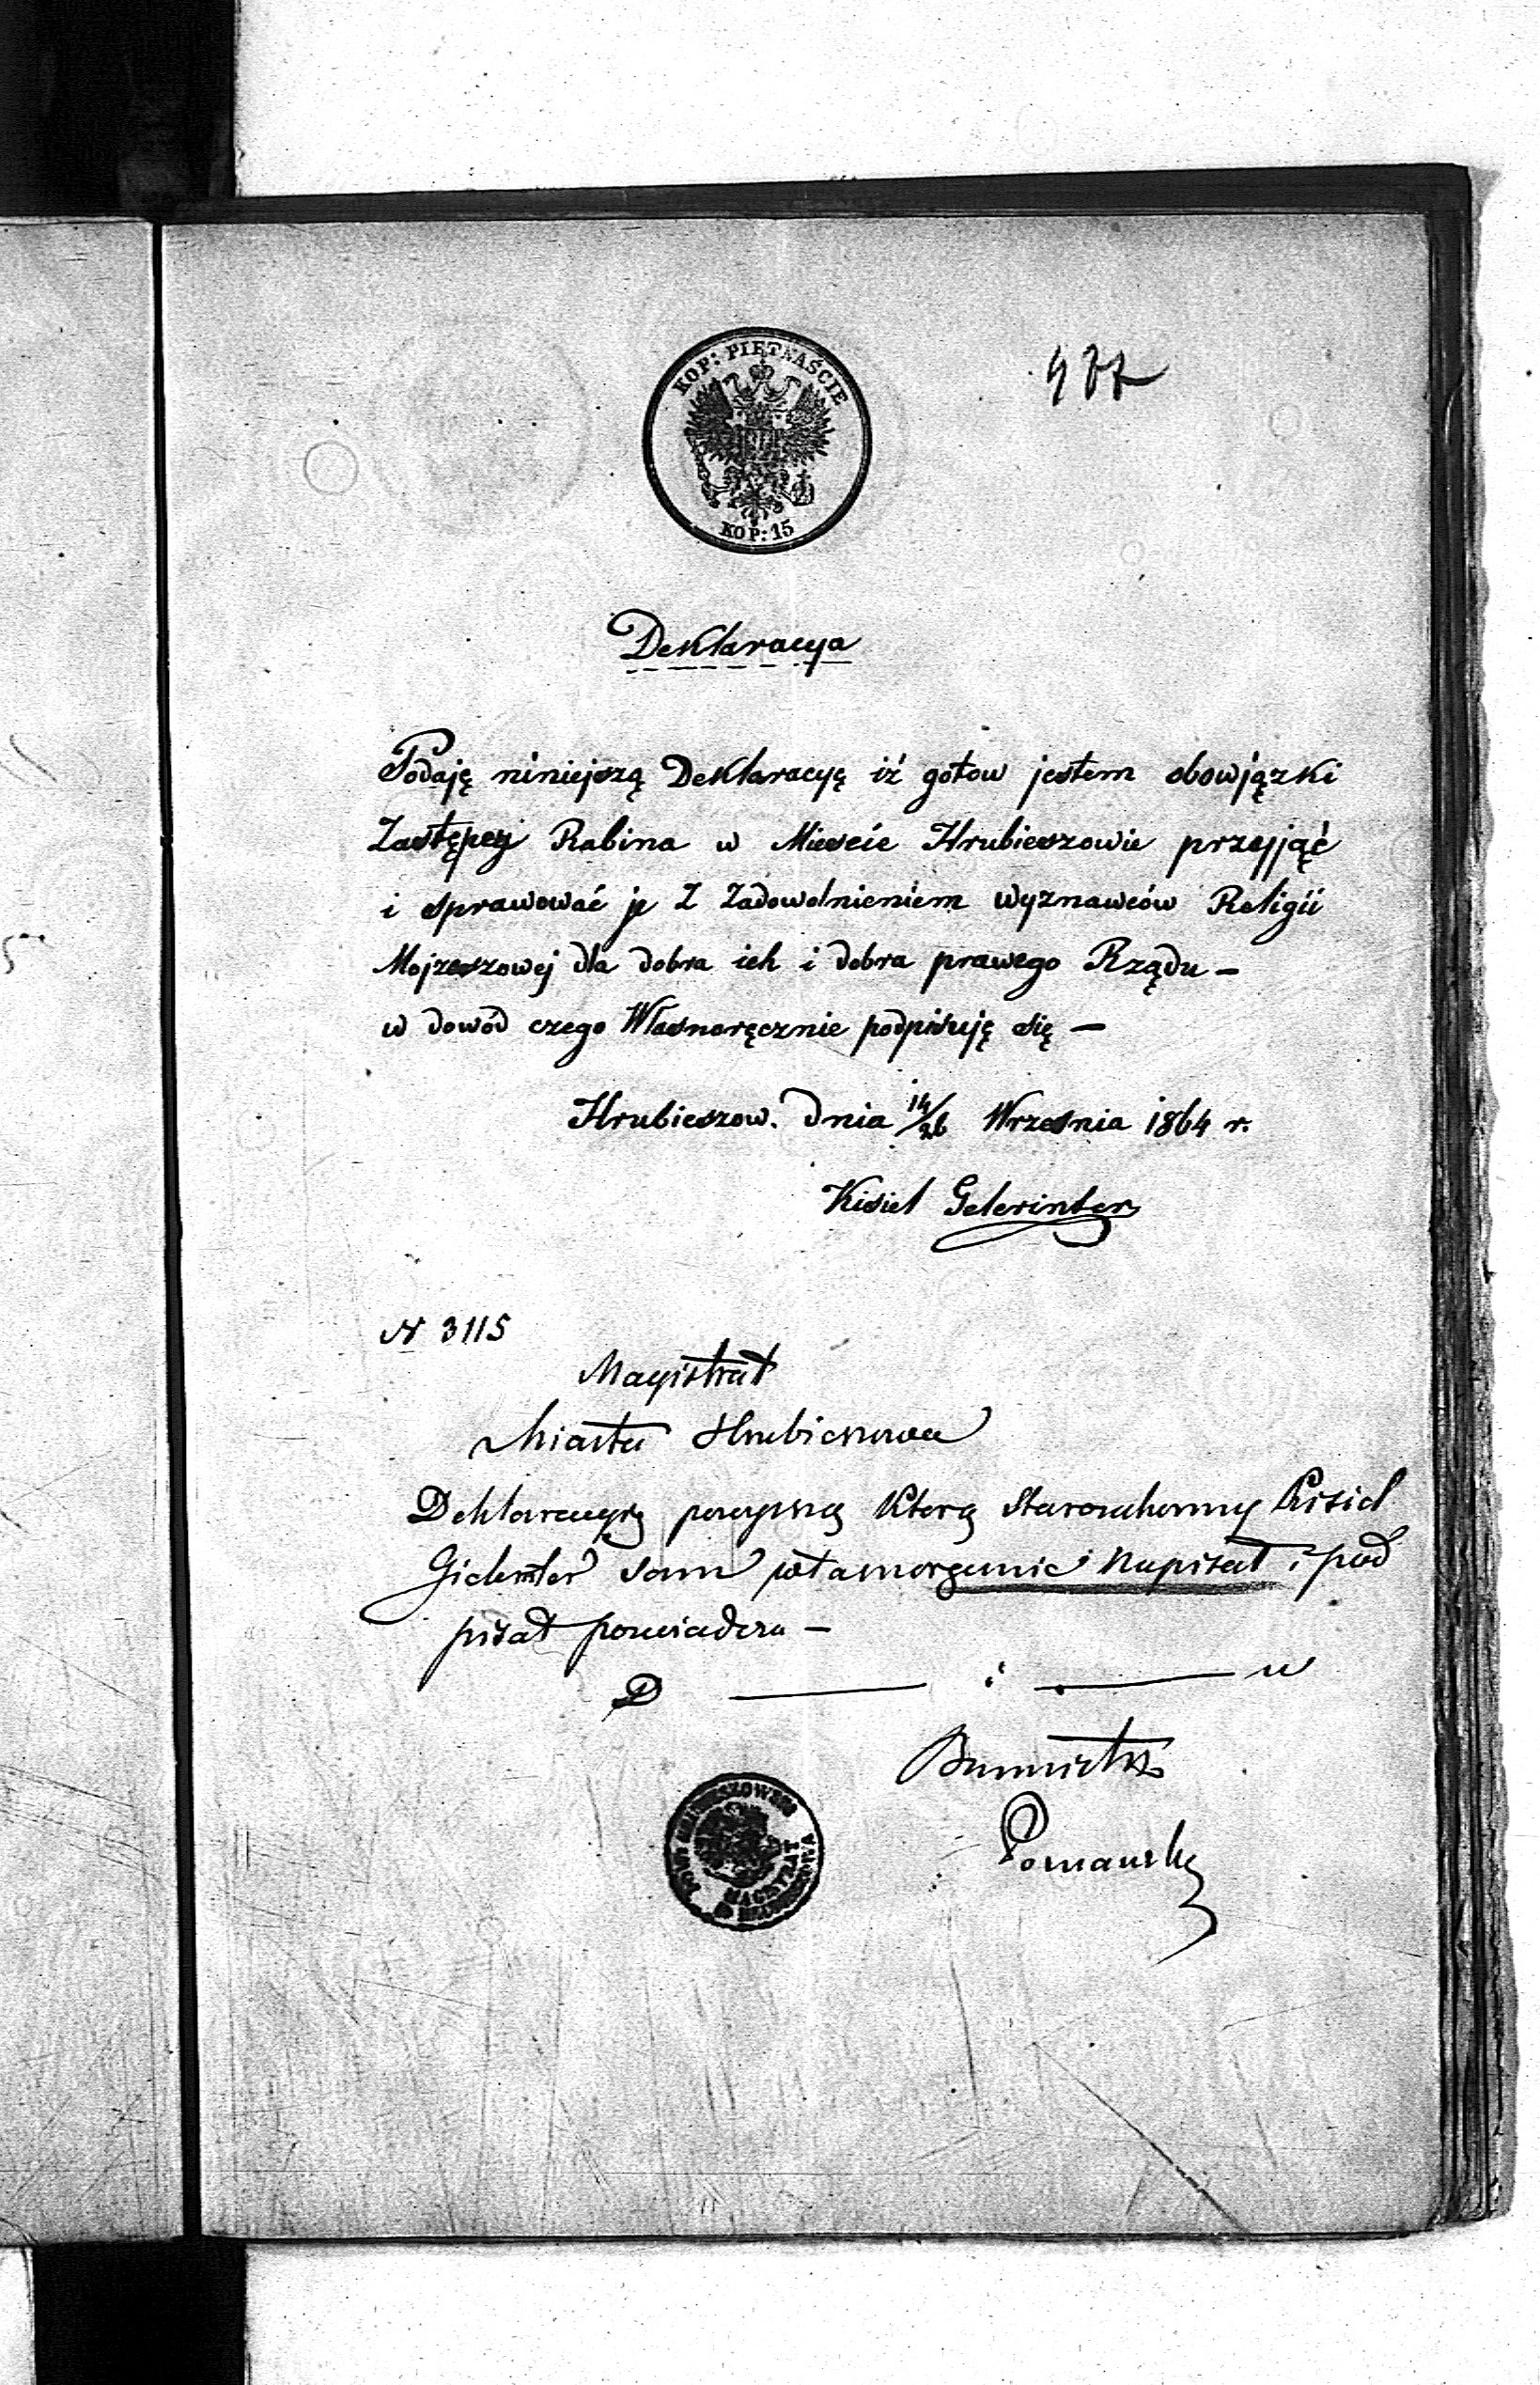 KOP: PIĘTNAŚCIE
KOP: 15
Deklaracya
Podaję niniejszą Deklaracyę iż gotow jestem obowjązki
Zastępcy Rabina w Miescie Hrubieszowie przyjąć
i sprawować je z zadowolnieniem wyznawców Religii
Mojzeszowej dla dobra ich i dobra prawego Rządu —
w dowód czego Własnoręcznie podpisuję się —
Hrubieszow. dnia 14/26 Wrzesnia 1864 r.
Kisiel Gelerinter
N 3115
Magistrat
Miasta Hrubieszowa
Deklaracyę powyższą którą Starozakonny Kisiel
sam własnoręcznie napisał i pod
pisał poswiadcza —
D — i — w
Burmistrz
MAGISTRAT